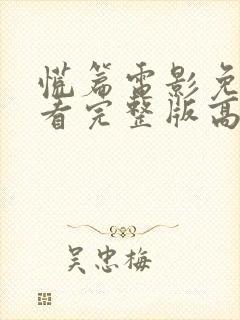 慌篇雷影免
看完整版高
吴忠梅